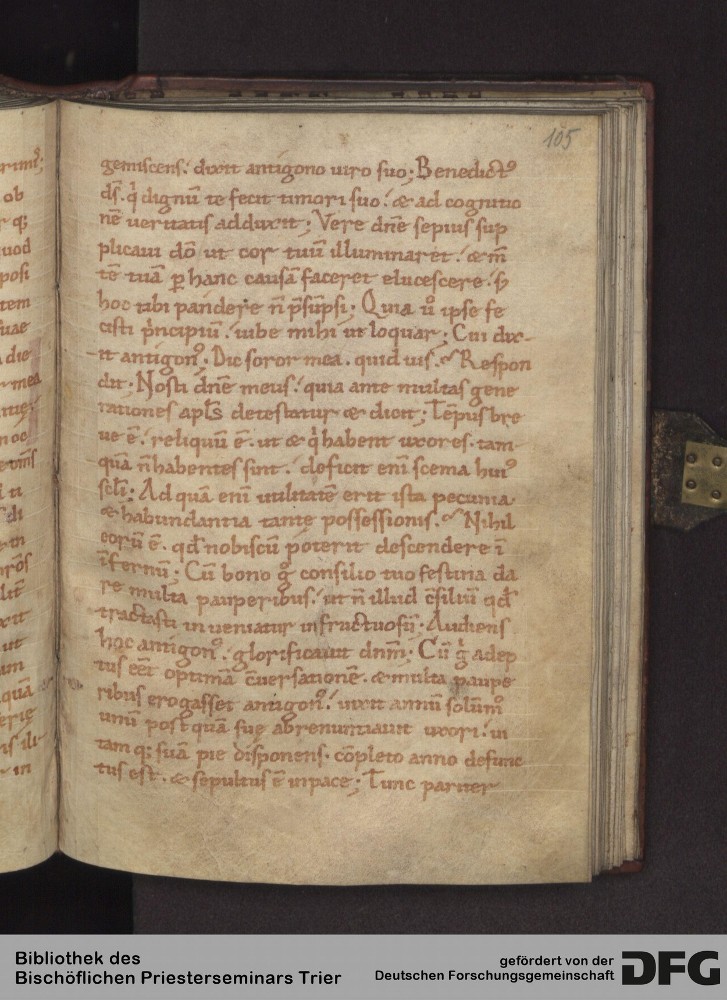 105
gemiscens. dixit antigono uiro suo; Benedict᷒
ds̄. q̇ dignū te fecit timori suo. & ad cognitio
nē ueritatis adduxit; Vere dn̄e sepius sup
plicaui dō ut cor tuū illuminaret. & m̄
tē tuā ꝑ hanc causā faceret elucescere. s;
hoc tibi pandere n̄ p̄sūpsi; Quia u̇ ipse fe
cisti p̄ncipiū. iube mihi ut loquar; Cui dix-
-it antigon᷒. Dic soror mea. quid uis. Respon
dit; Nosti dn̄e meus. quia ante multas gene
rationes apl̄s detestatur & dicit; Tēpus bre
ue ē. reliquū ē. ut & q̇ habent uxores. tam-
quā n̄ habentes sint. deficit eni scema hui᷒
sclī; Ad quā eni utilitatē erit ista pecunia
& habundantia tante possessionis. Nihil
eorū ē. qd̄ nobiscū poterit descendere ī
īfernū; Cū bono g̊ consilio tuo festina da
re multa pauperibus. ut n̄ illud c̄siliū qd̄
tractasti inueniatur infructuosū; Audiens
hoc antigon᷒. glorificauit dn̄m; Cū g̊ adep
tus eēt optimā c̄uersationē. & multa paupe
ribus erogasset antigon᷒. uixit annū solūm᷒
unū postquā sue abrenuntiauit uxori. ui
tam q; suā pie disponens. cōpleto anno defunc
tus est. & sepultus ē inpace; Tunc pariter
ob
r q;
uod
posi
tem
uae
die
mea
Bibliothek des
Bischöflichen Priesterseminars Trier
gefördert von der
Deutschen Forschungsgemeinschaft
DFG